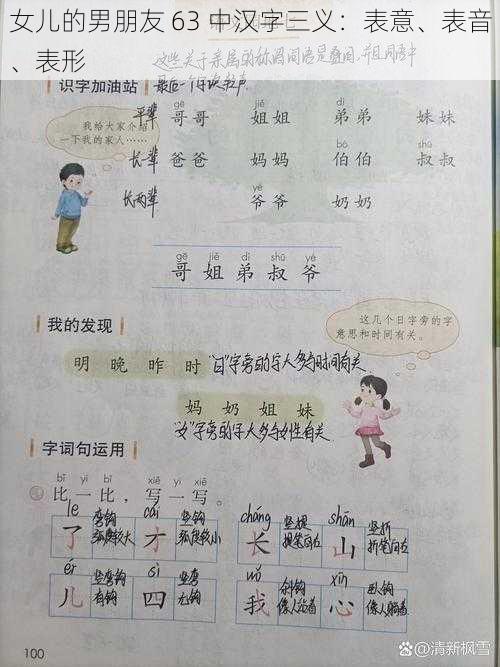 女儿的男朋友 63 中汉字三义：表意、表音
、表形
这些关于亲属的称谓词语是叠词,并且词语中
识字加油站 最后一个字读轻声.
gē jiě dì
平辈 哥哥 姐姐 弟弟 妹妹
我给大家介绍
一下我的家人……
bó shū
长辈 爸爸 妈妈 伯伯 叔叔
yé
长两辈 爷爷 奶奶
gē jiě dì shū yé
哥 姐 弟 叔 爷
我的发现
这几个日字旁的字
意思和时间有关。
明 晚 昨 时 "日"字旁的字大多与时间有关
妈 奶 姐 妹
"女"字旁的字大多与女性有关
字词句运用
bǐ yi bǐ xiě yi xiě
比一比，写一写。
le cái cháng shān
了 弯钩 弧度较大 才 竖钩 弧度较小 长 竖提 提笔向右 山 竖折 折笔向右
ér sì wǒ xīn
儿 竖弯钩 有钩 四 竖弯 无钩 我 斜钩 像人站着 心 卧钩 像人躺着
100
@清新枫雪